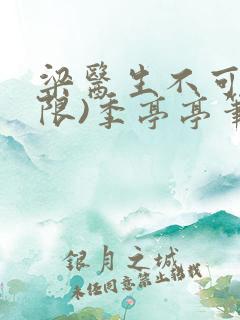 梁医生不可
限)季亭亭
银月之城
未经同意禁止转载